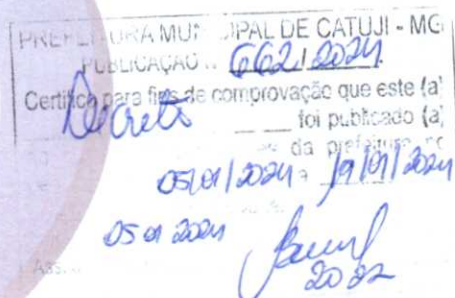 PREFEITURA MUNICIPAL DE CATUJI - MG
PUBLICAÇÃO N. 662/2024
Certifico para fins de comprovação que este (a)
Decreto foi publicado (a)
da prefeitura no
05/01/2024 a 19/01/2024
05 01 2024
2022